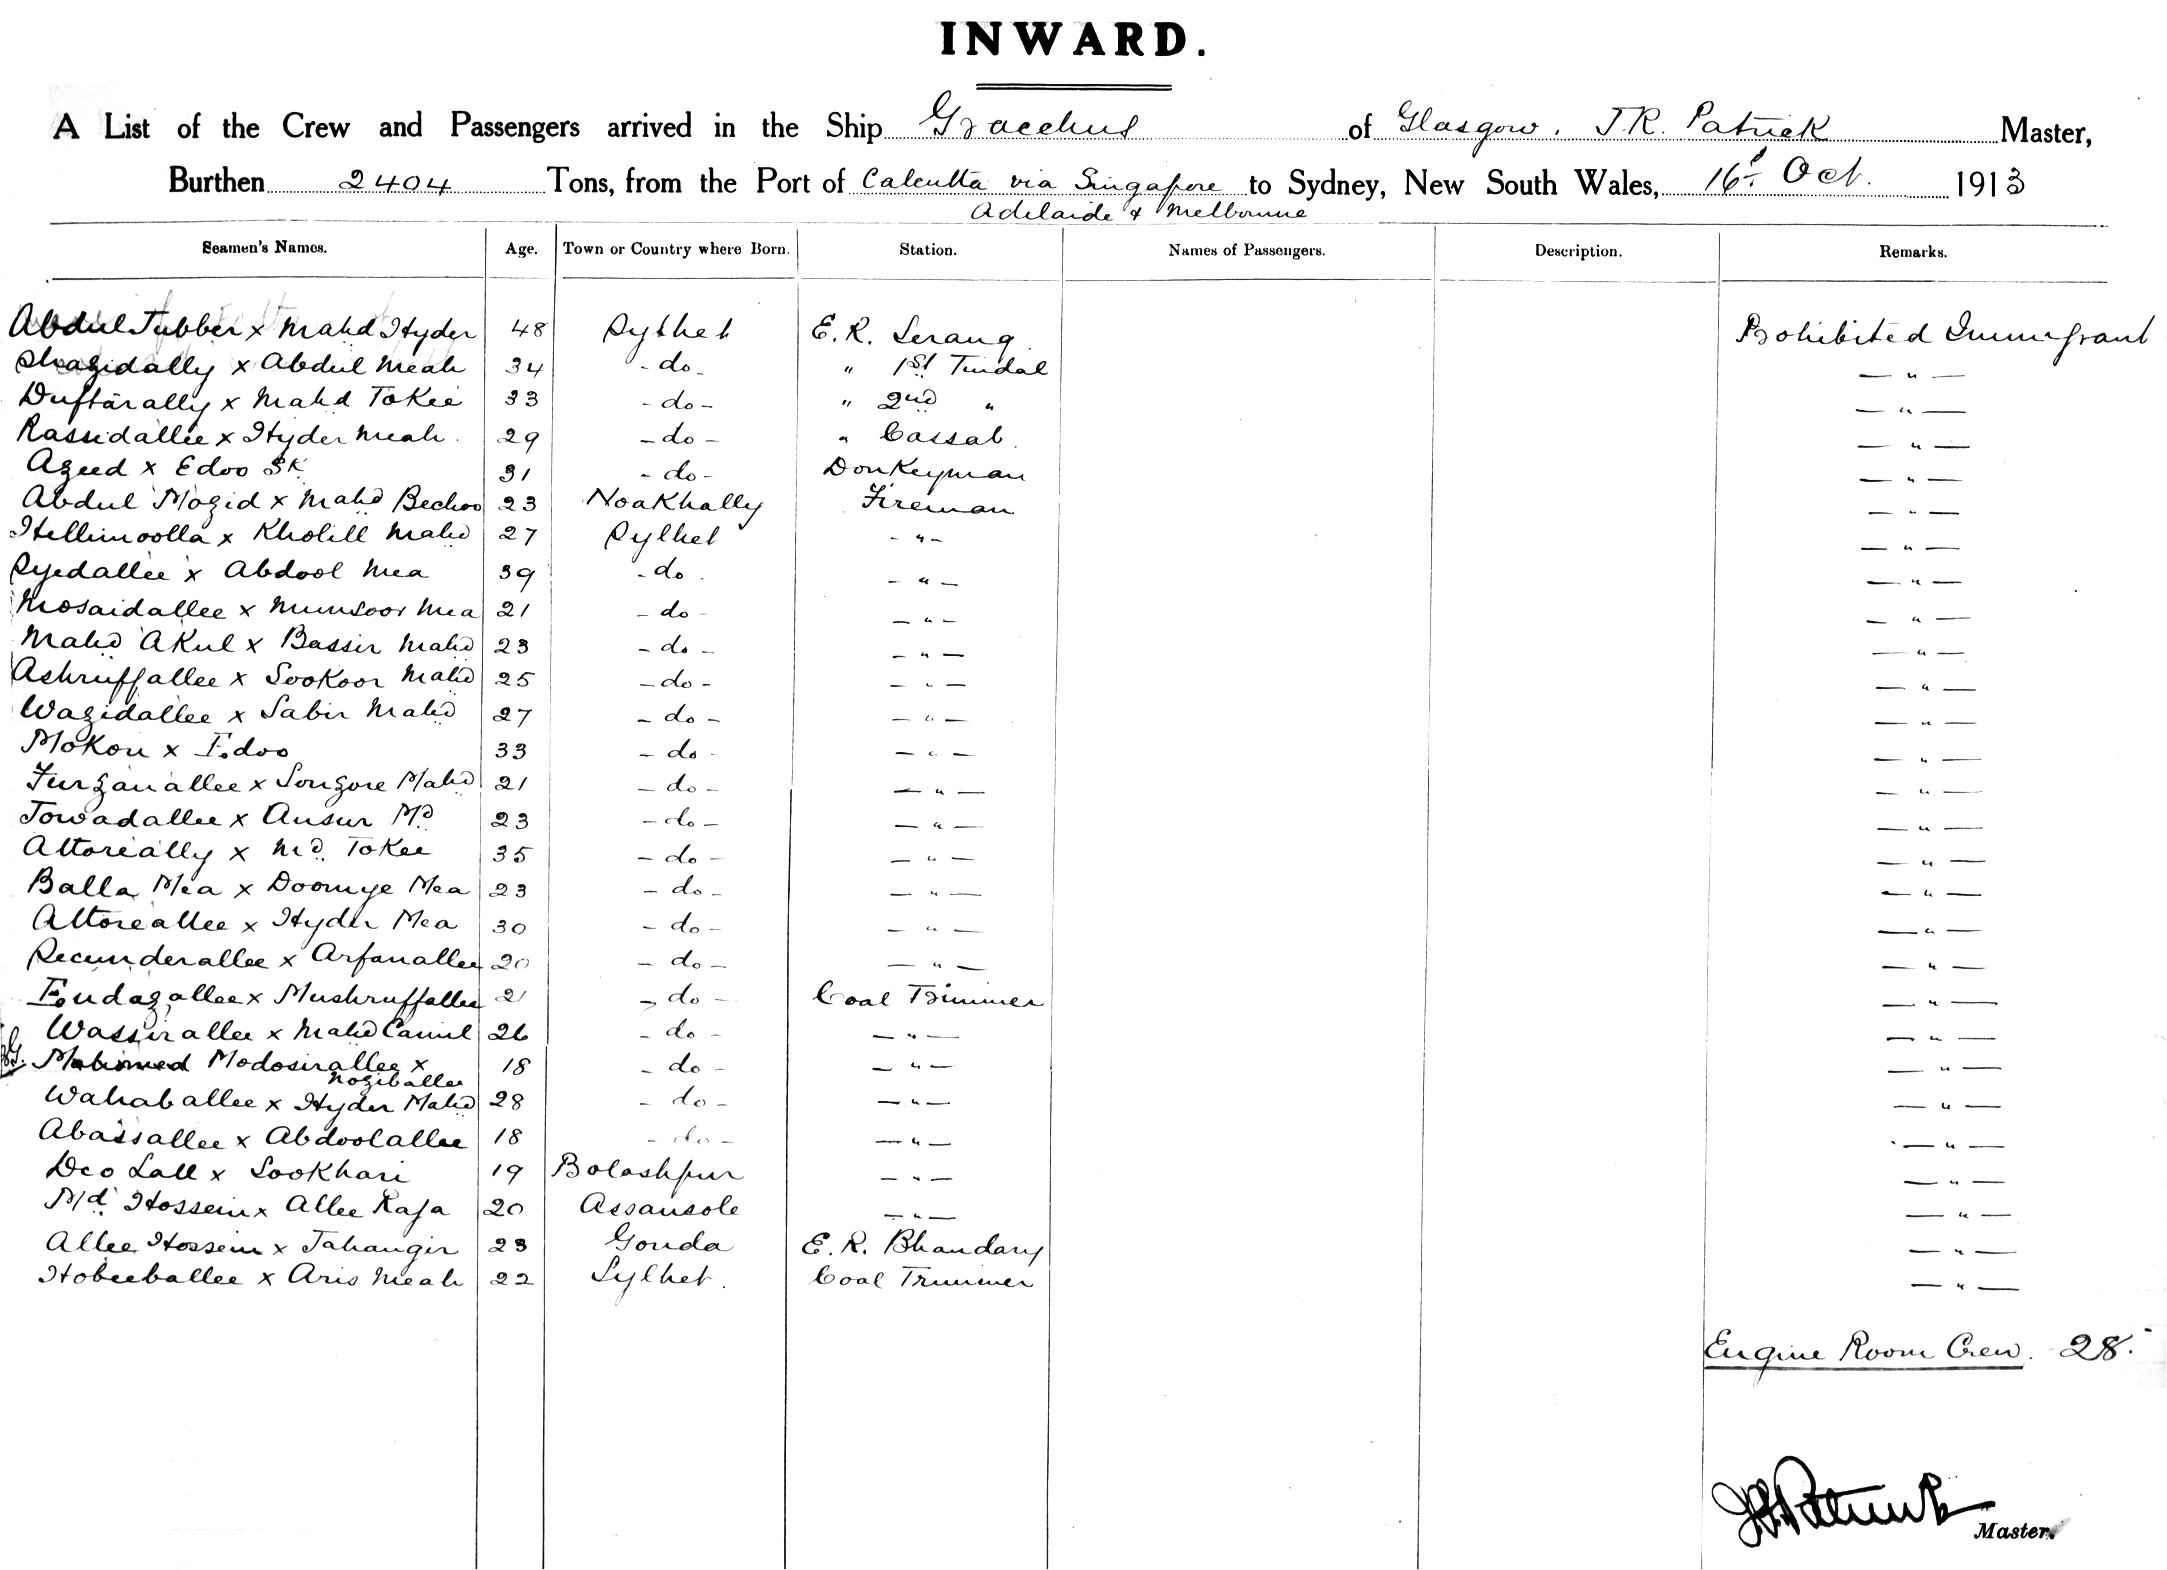 INWARD.
A List of the Crew and Passengers arrived in the Ship Gracchus of Glasgow. J.R. Patrick Master,
Burthen 2404 Tons, from the Port of Calcutta via Singapore to Sydney, New South Wales, 16th Oct. 1913
Adelaide & Melbourne
Seamen's Names. Age. Town or Country where Born. Station. Names of Passengers. Description. Remarks.
Abdul Jubber x Mahd Hyder 48 Sylhet E. R. Serang Prohibited Immigrant
Shazidally x Abdul Meah 34 - do - " 1st Tindal — " —
Duftarally x Mahd Tokee 33 - do - " 2nd " — " —
Rassidallee x Hyder Meah. 29 - do - " Cassab. — " —
Azeed x Edoo SK 31 - do - Donkeyman — " —
Abdul Mozid x Mahd Bechoo 23 Noakhally Fireman — " —
Hellimoolla x Kholill Mahd 27 Sylhet - " - — " —
Syedallee x Abdool Mea 39 - do - - " - — " —
Mosaidallee x Munsoor Mea 21 - do - - " - — " —
Mahd Akul x Bassir Mahd 23 - do - - " - — " —
Ashruffallee x Sookoor Mahd 25 - do - - " - — " —
Wazidallee x Sabir Mahd 27 - do - - " - — " —
Mokon x Edoo 33 - do - - " - — " —
Furzanallee x Songore Mahd 21 - do - — " — — " —
Jowadallee x Ansur Md 23 - do - — " — — " —
Attoreally x Md. Tokee 35 - do - — " — — " —
Balla Mea x Doomye Mea 23 - do - — " — — " —
Attoreallee x Hyder Mea 30 - do - — " — — " —
Secunderallee x Arfanallee 20 - do - — " — — " —
Eudazallee x Mushruffallee 21 - do - Coal Trimmer — " —
Wassirallee x Mahd Camil 26 - do - — " — — " —
Mohomed Modosirallee x 18 - do - — " — — " —
Noziballee
Wahaballee x Hyder Mahd 28 - do - — " — — " —
Abassallee x Abdoolallee 18 - do - — " — — " —
Deo Lall x Sookhari 19 Bolashpur — " — — " —
Md. Hossein x Allee Raja 20 Assansole — " — — " —
Allee Hossein x Jahangir 23 Gonda E. R. Bhandary — " —
Hobeeballee x Aris Meah 22 Sylhet. Coal Trimmer — " —
Engine Room Crew. 28.
J.R. Patrick
Master.